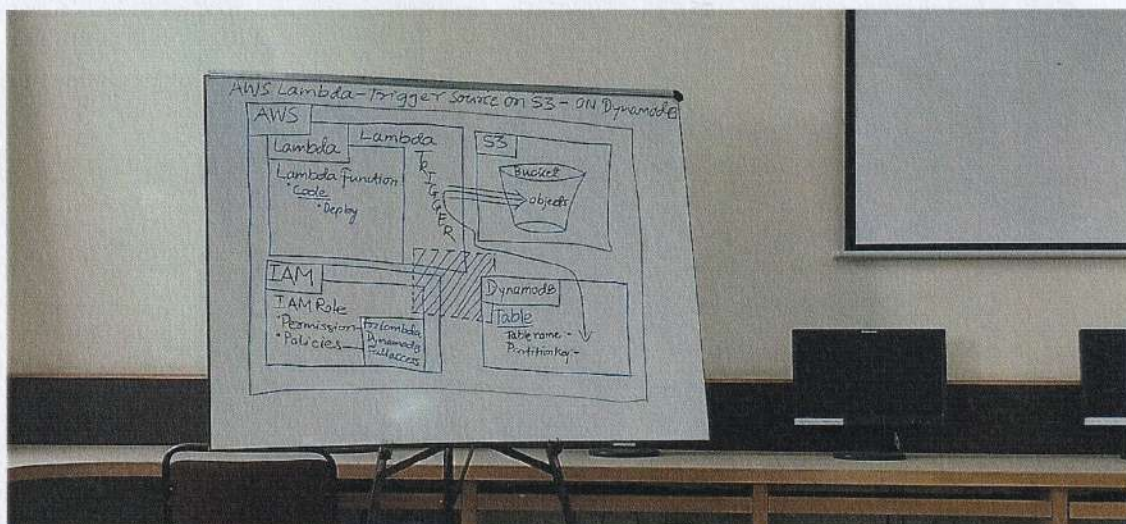 AWS Lambda-Trigger Source on S3 - ON DynamodB
AWS
Lambda
Lambda
Lambda Function
• Code
• Deploy
TRIGGER
S3
Bucket
objects
IAM
IAM Role
• Permission
• Policies
For Lambda
DynamodB
Fullaccess
DynamodB
Table
Table name -
Partitionkey -